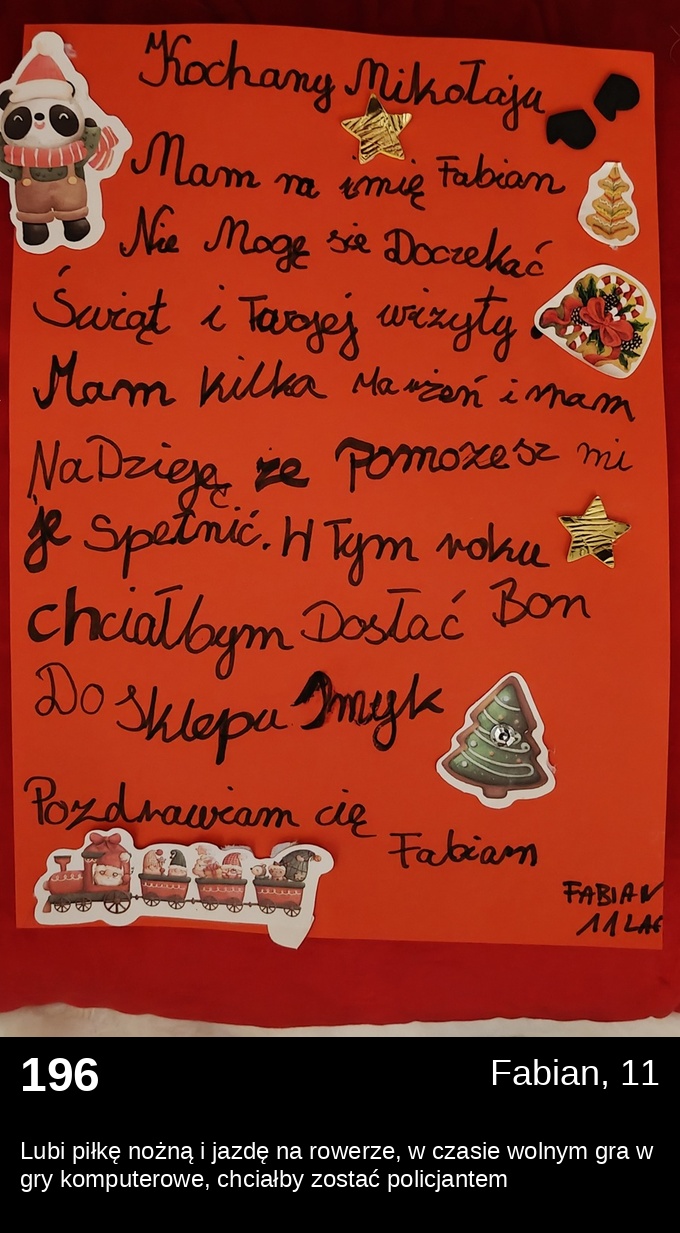 Kochany Mikołaju
Mam na imię Fabian
Nie Mogę się Doczekać
Świąt i Twojej wizyty.
Mam kilka Marzeń i mam
NaDzieję że pomożesz mi
je Spełnić. W Tym roku
chciałbym Dostać Bon
Do Sklepu Smyk
Pozdrawiam cię
Fabian
FABIAN
11 LAT
196
Fabian, 11
Lubi piłkę nożną i jazdę na rowerze, w czasie wolnym gra w
gry komputerowe, chciałby zostać policjantem